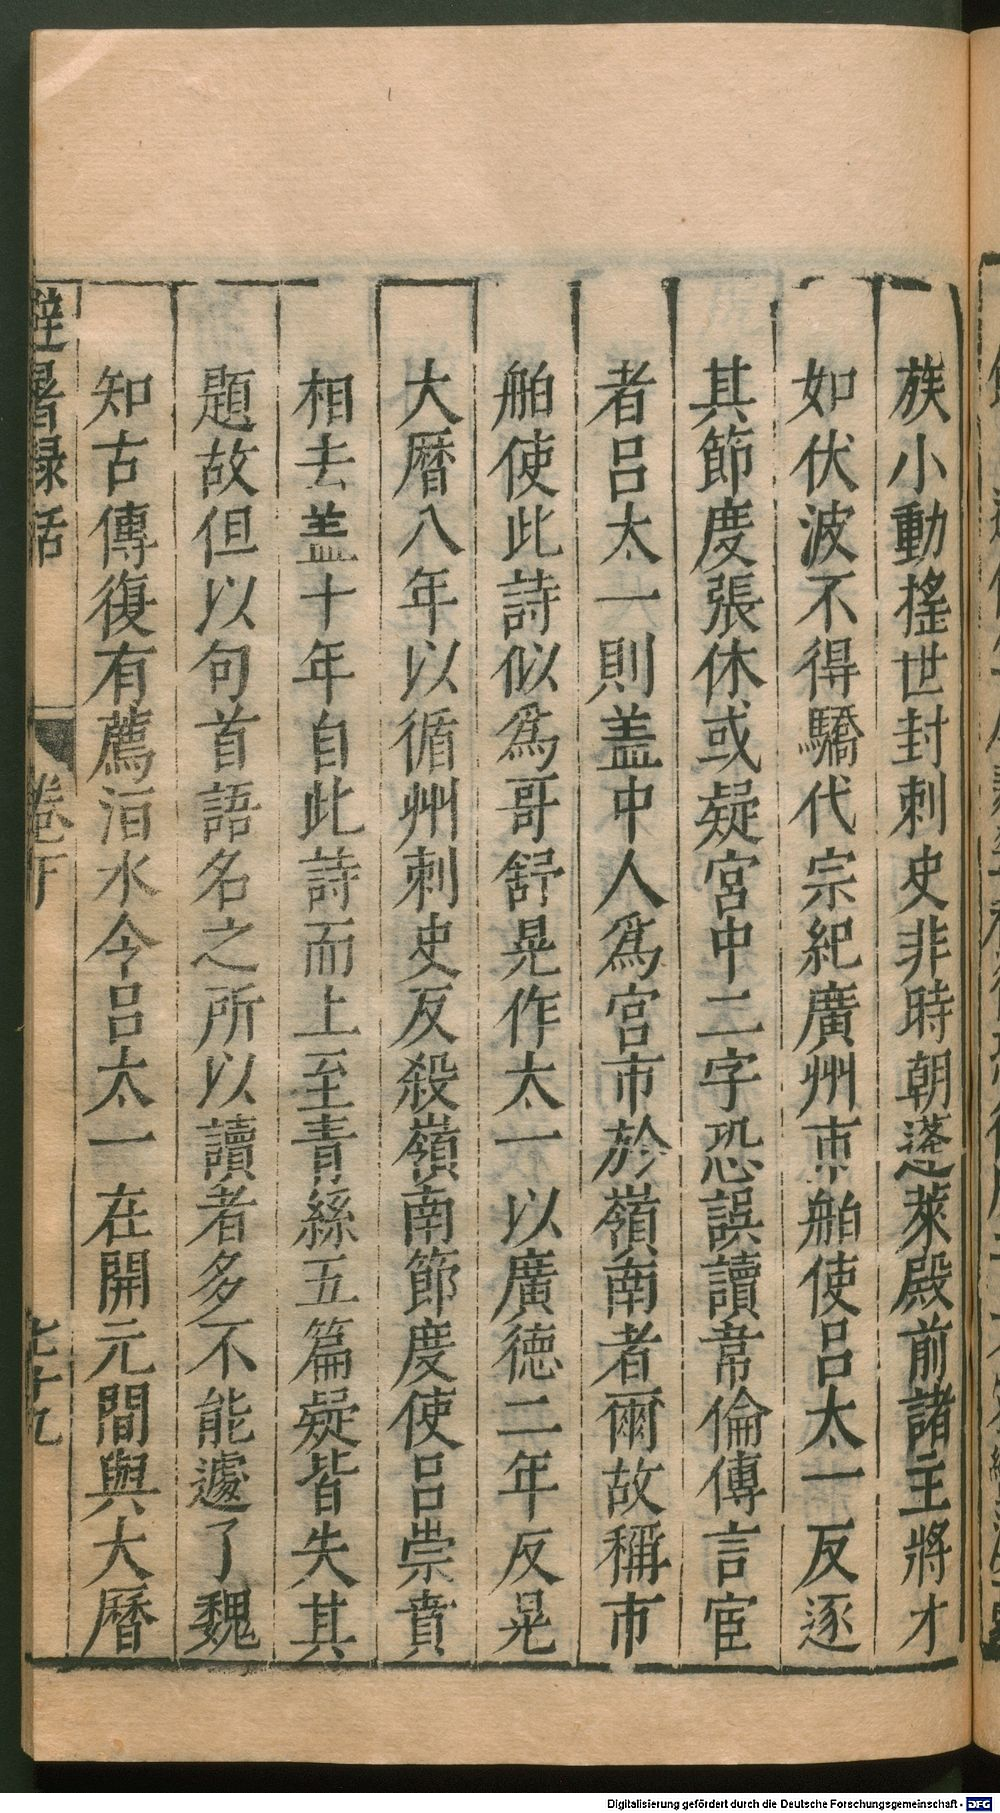 族小動搖世封刺史非時朝蓬萊殿前諸主將才
如伏波不得驕代宗紀廣州市舶使呂太一反逐
其節度張休或疑宮中二字恐誤讀韋倫傳言宦
者呂太一則盖中人爲宮市於嶺南者爾故稱市
舶使此詩似爲哥舒晃作太一以廣德二年反晃
大曆八年以循州刺史反殺嶺南節度使呂崇賁
相去盖十年自此詩而上至青絲五篇疑皆失其
題故但以句首語名之所以讀者多不能遽了魏
知古傳復有薦洹水令呂太一在開元間與大曆
避暑録話 卷下 七十九
Digitalisierung gefördert durch die Deutsche Forschungsgemeinschaft - DFG